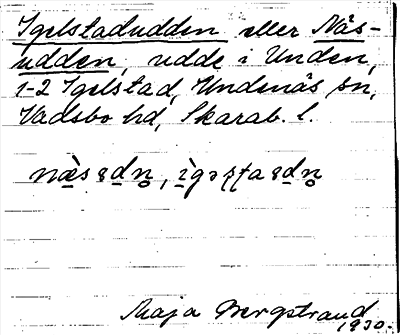 Igelstadudden eller Näs-
udden, udde i Unden,
1-2 Igelstad, Undenäs sn,
Vadsbo hd, Skarab. l.
Maja Bergstrand
1930.